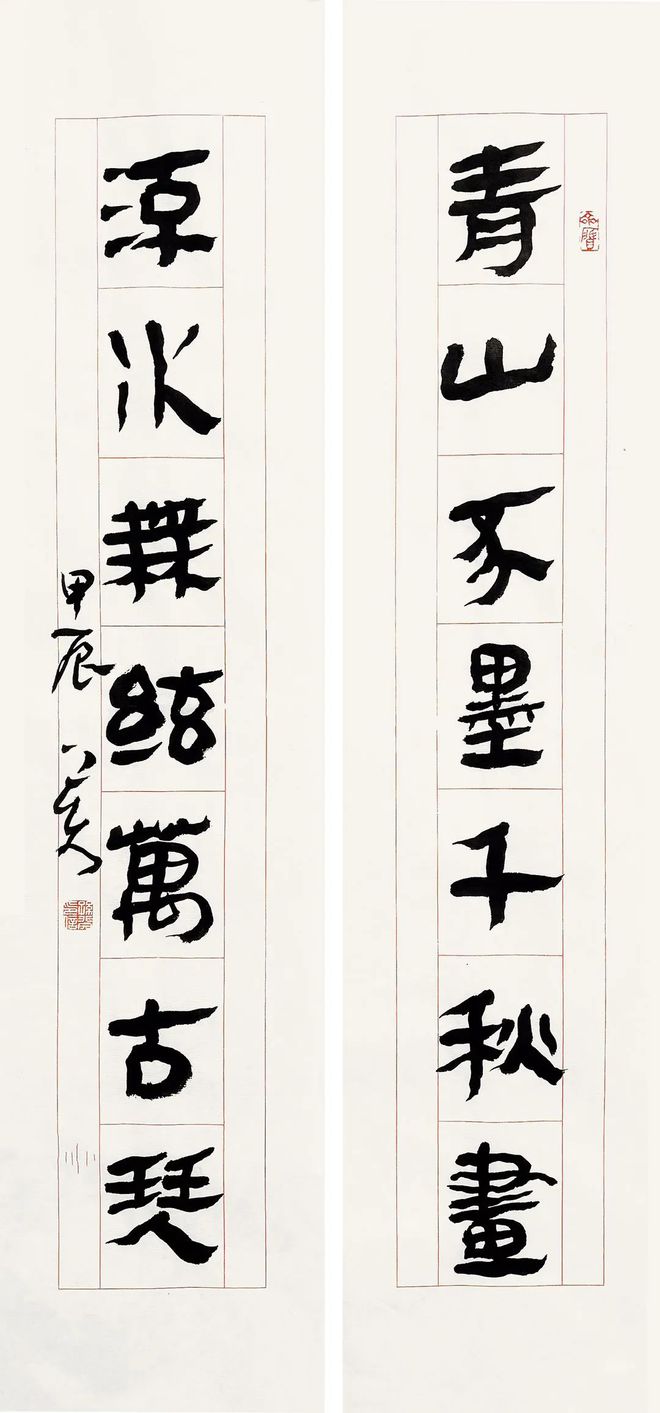 青山不墨千秋畫
源水無絃萬古琴
甲辰